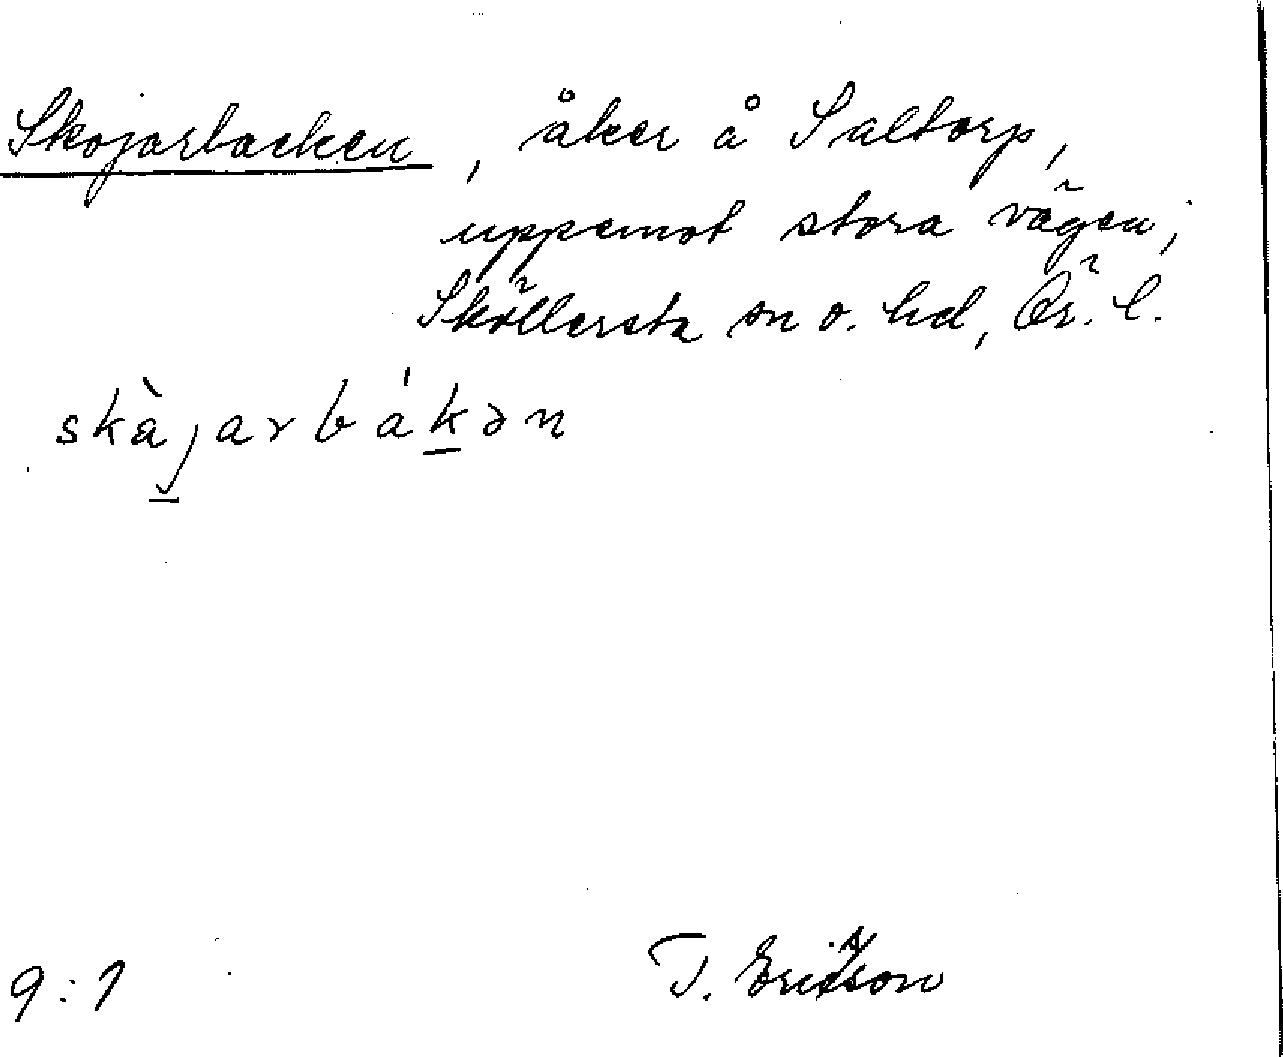 Skojarbacken, åker å Saltorp,
uppemot stora vägen;
Sköllersta sn o. hd, Ör. l.
skàjarbákən
9:1
T. Ericsson